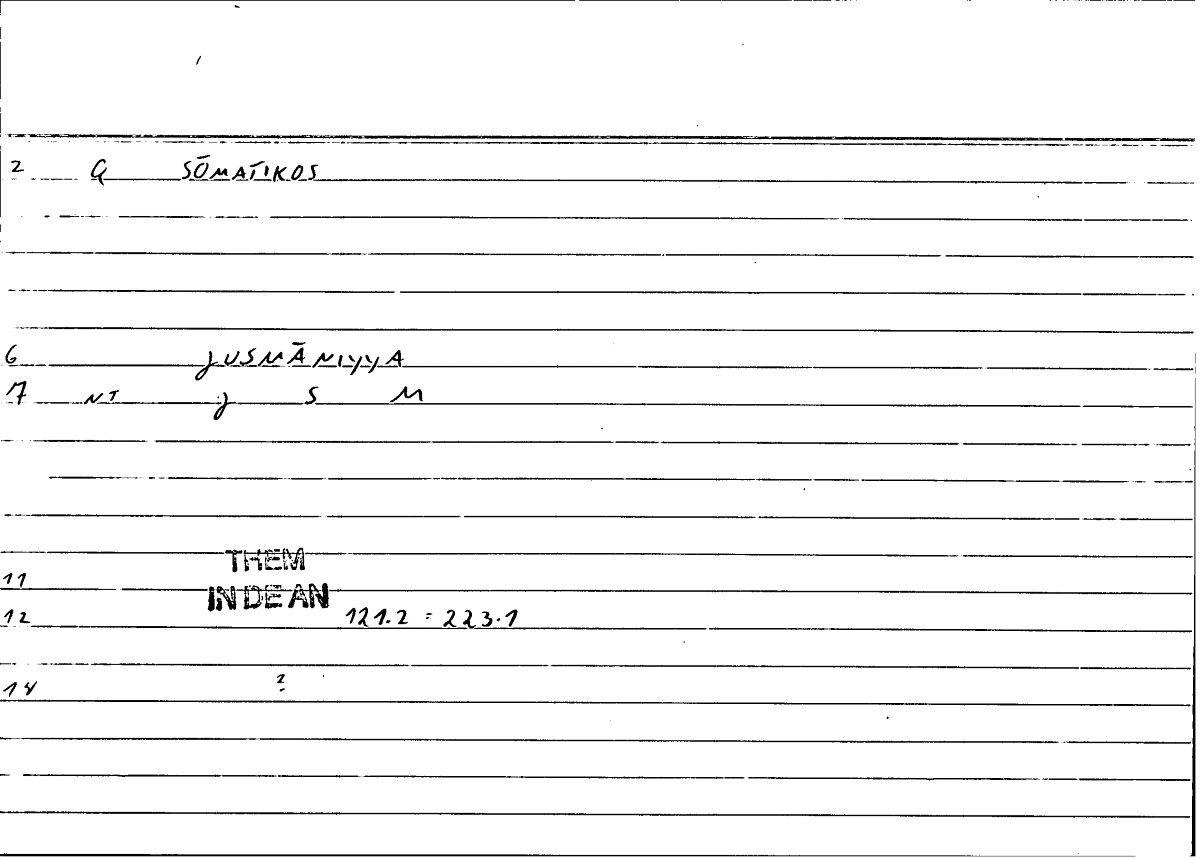 2 G SŌMATIKOS
6 JUSMĀNIYYA
7 NT J S M
THEM
11 IN DE AN
12 121.2 = 223.1
14 ?